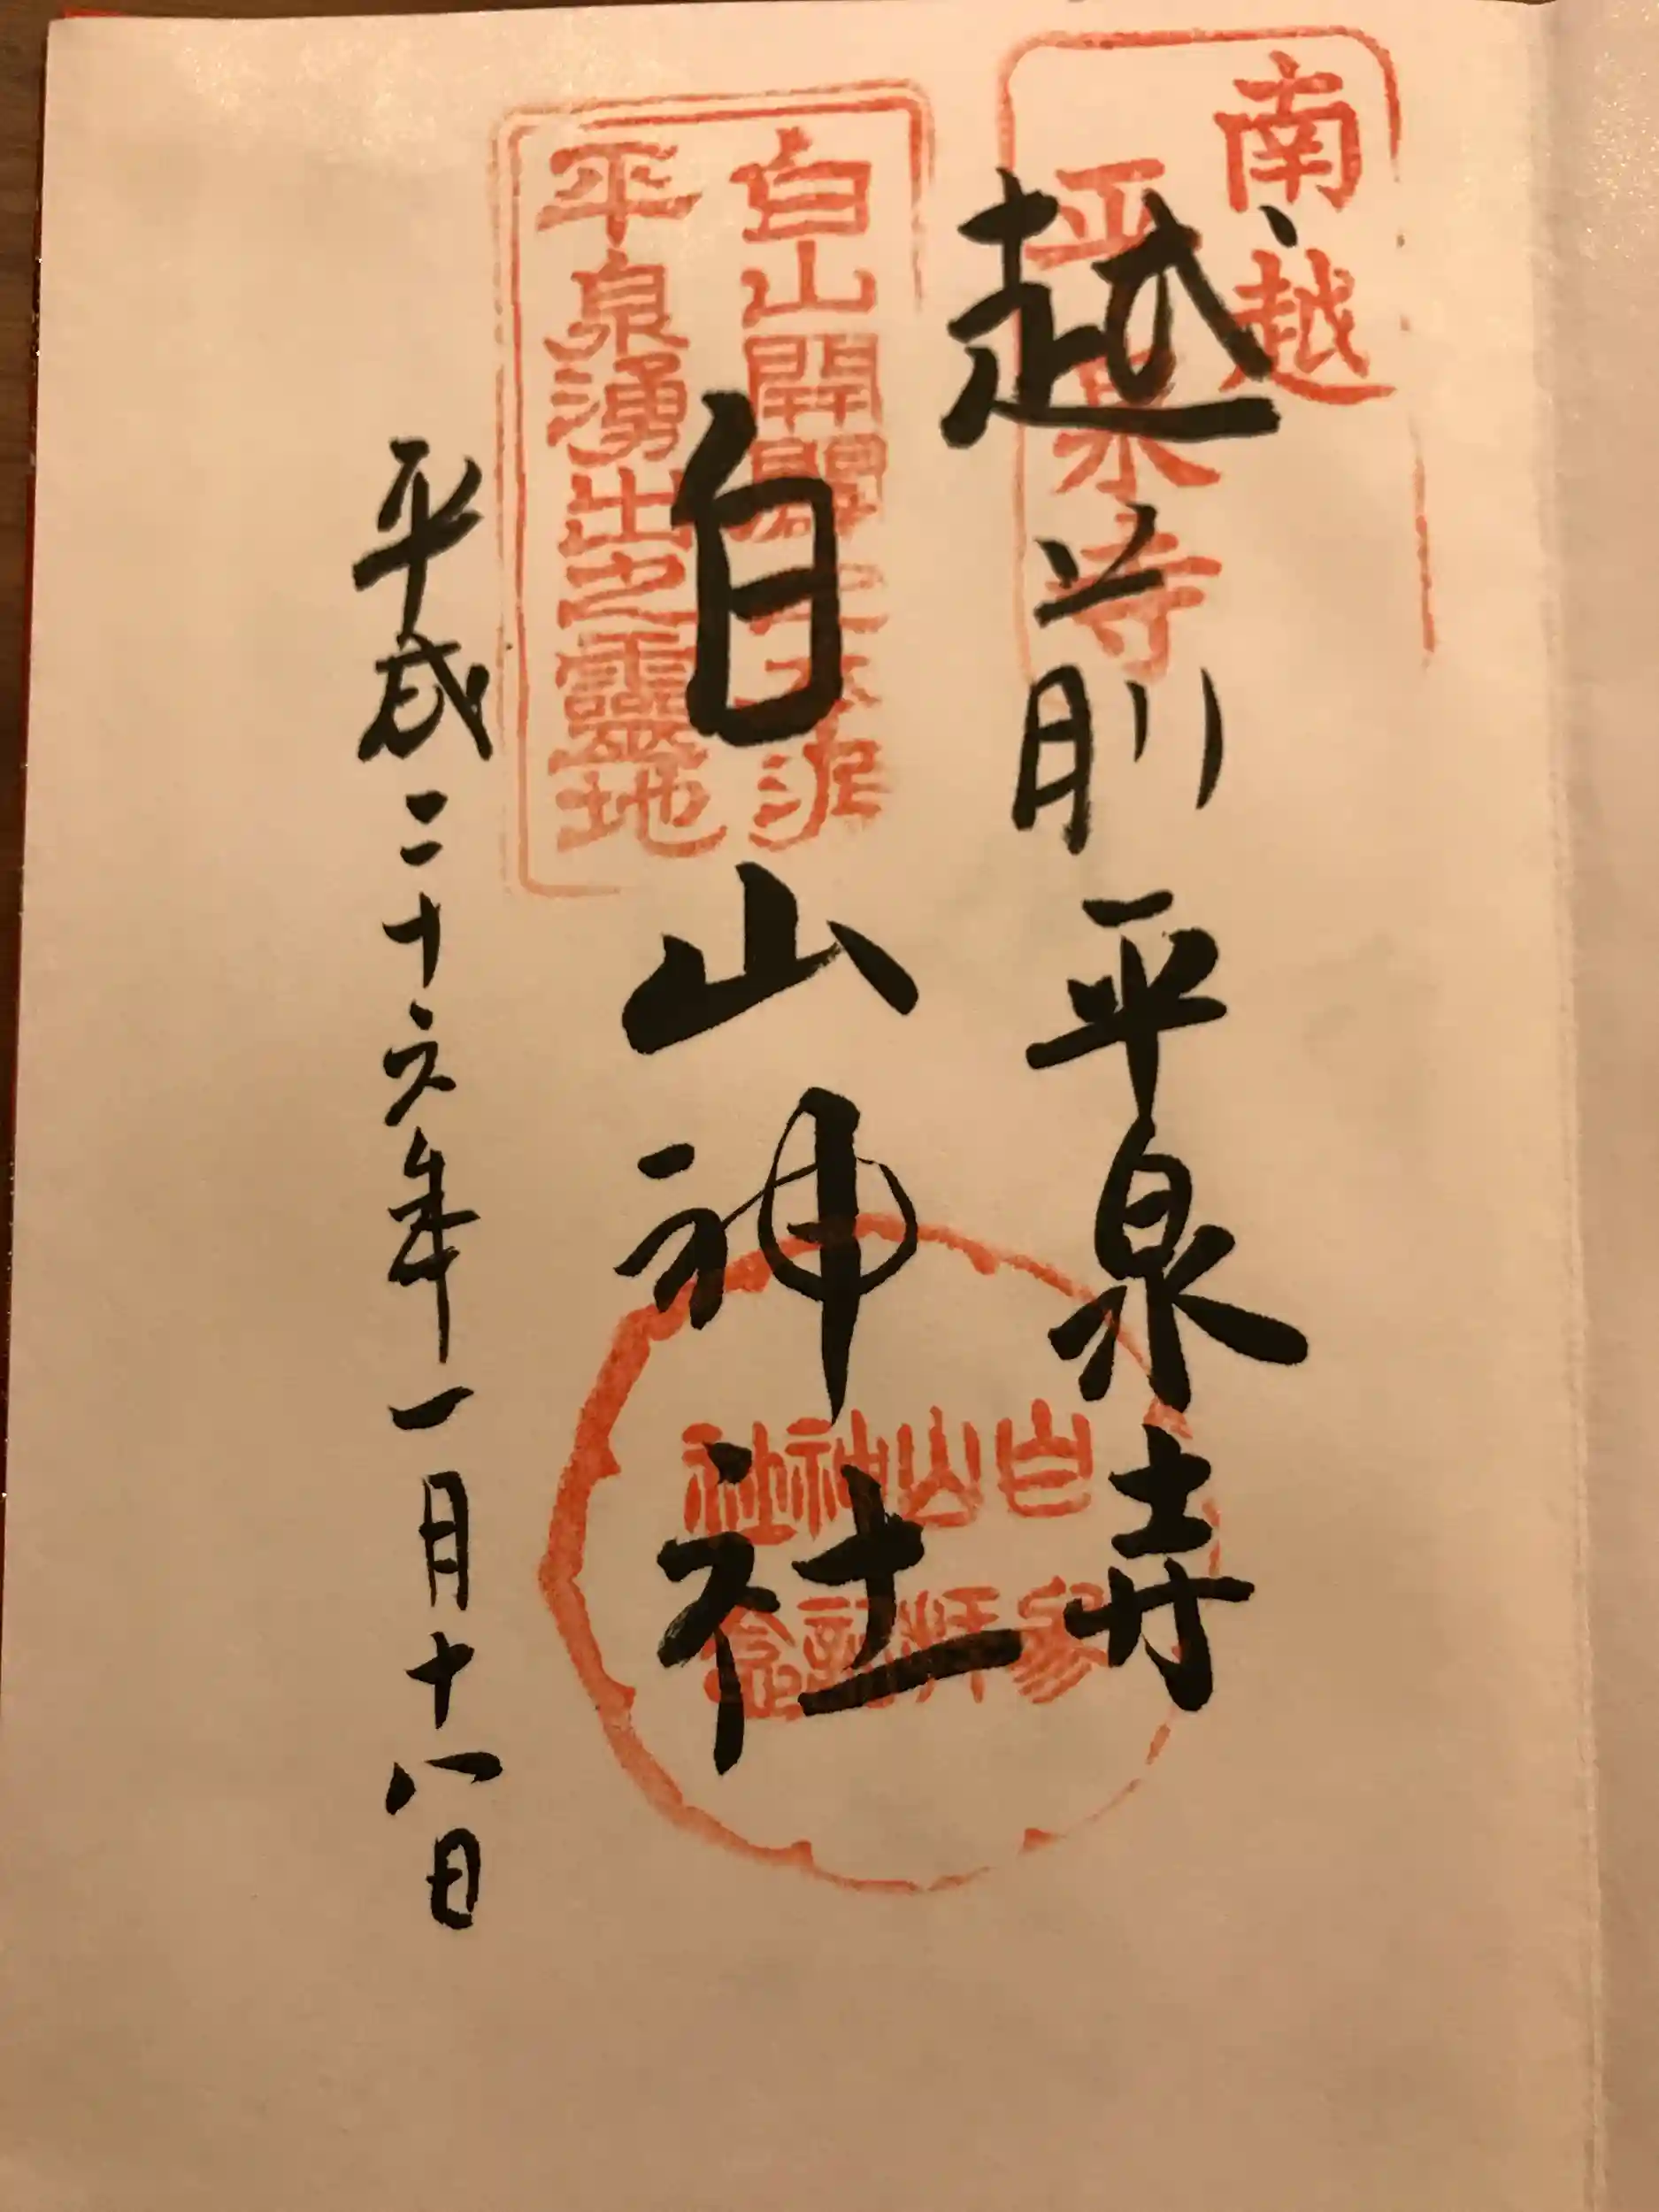 南越
平泉寺
越前平泉寺
白山開闢之
平泉湧出之靈地
白山神社
白山神社
參拝記念
平成二十六年一月十八日